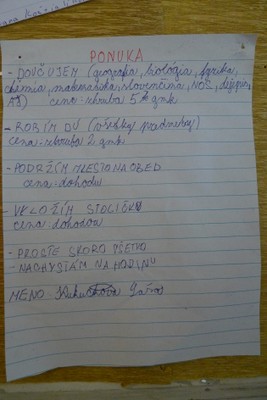 PONUKA
- DOUČUJEM (geografia, biológia, fyzika,
chémia, matematika, slovenčina, NOS, dejepis,
AJ) cena - zhruba 5
- ROBÍM DÚ (všetky predmety)
cena - zhruba 2
- PODRŽÍM MIESTO NA OBED
cena - dohodou
- VYLOŽÍM STOLIČKU
cena dohodou
- PROSTE SKORO VŠETKO
- NACHYSTÁM NA HODINU
MENO: